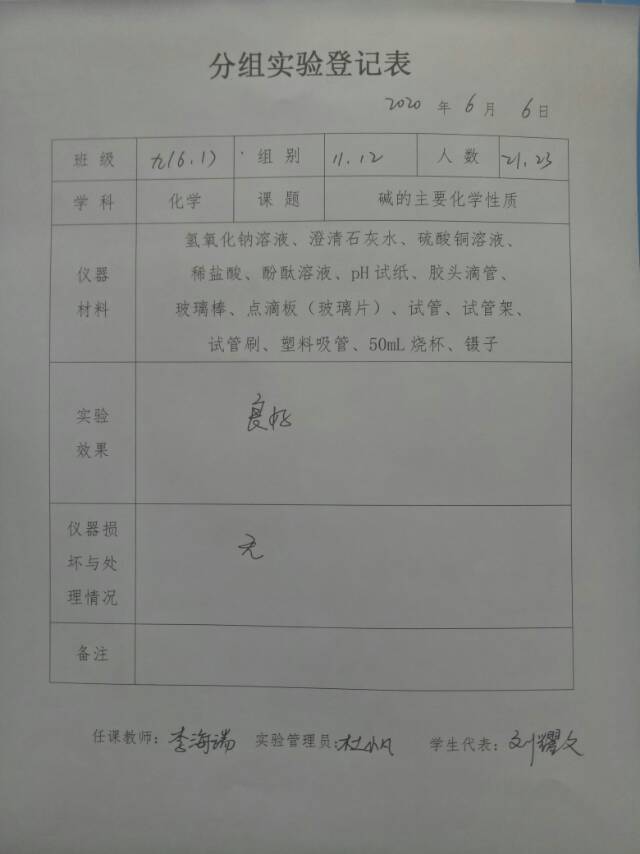 分组实验登记表
2020 年 6 月 6 日
班级 九(6.1) 组别 11.12 人数 21.23
学科 化学 课题 碱的主要化学性质
仪器材料 氢氧化钠溶液、澄清石灰水、硫酸铜溶液、
稀盐酸、酚酞溶液、pH 试纸、胶头滴管、
玻璃棒、点滴板（玻璃片）、试管、试管架、
试管刷、塑料吸管、50mL 烧杯、镊子
实验效果 良好
仪器损坏与处理情况 无
备注
任课教师：李海瑞 实验管理员：杜小凡 学生代表：刘耀文